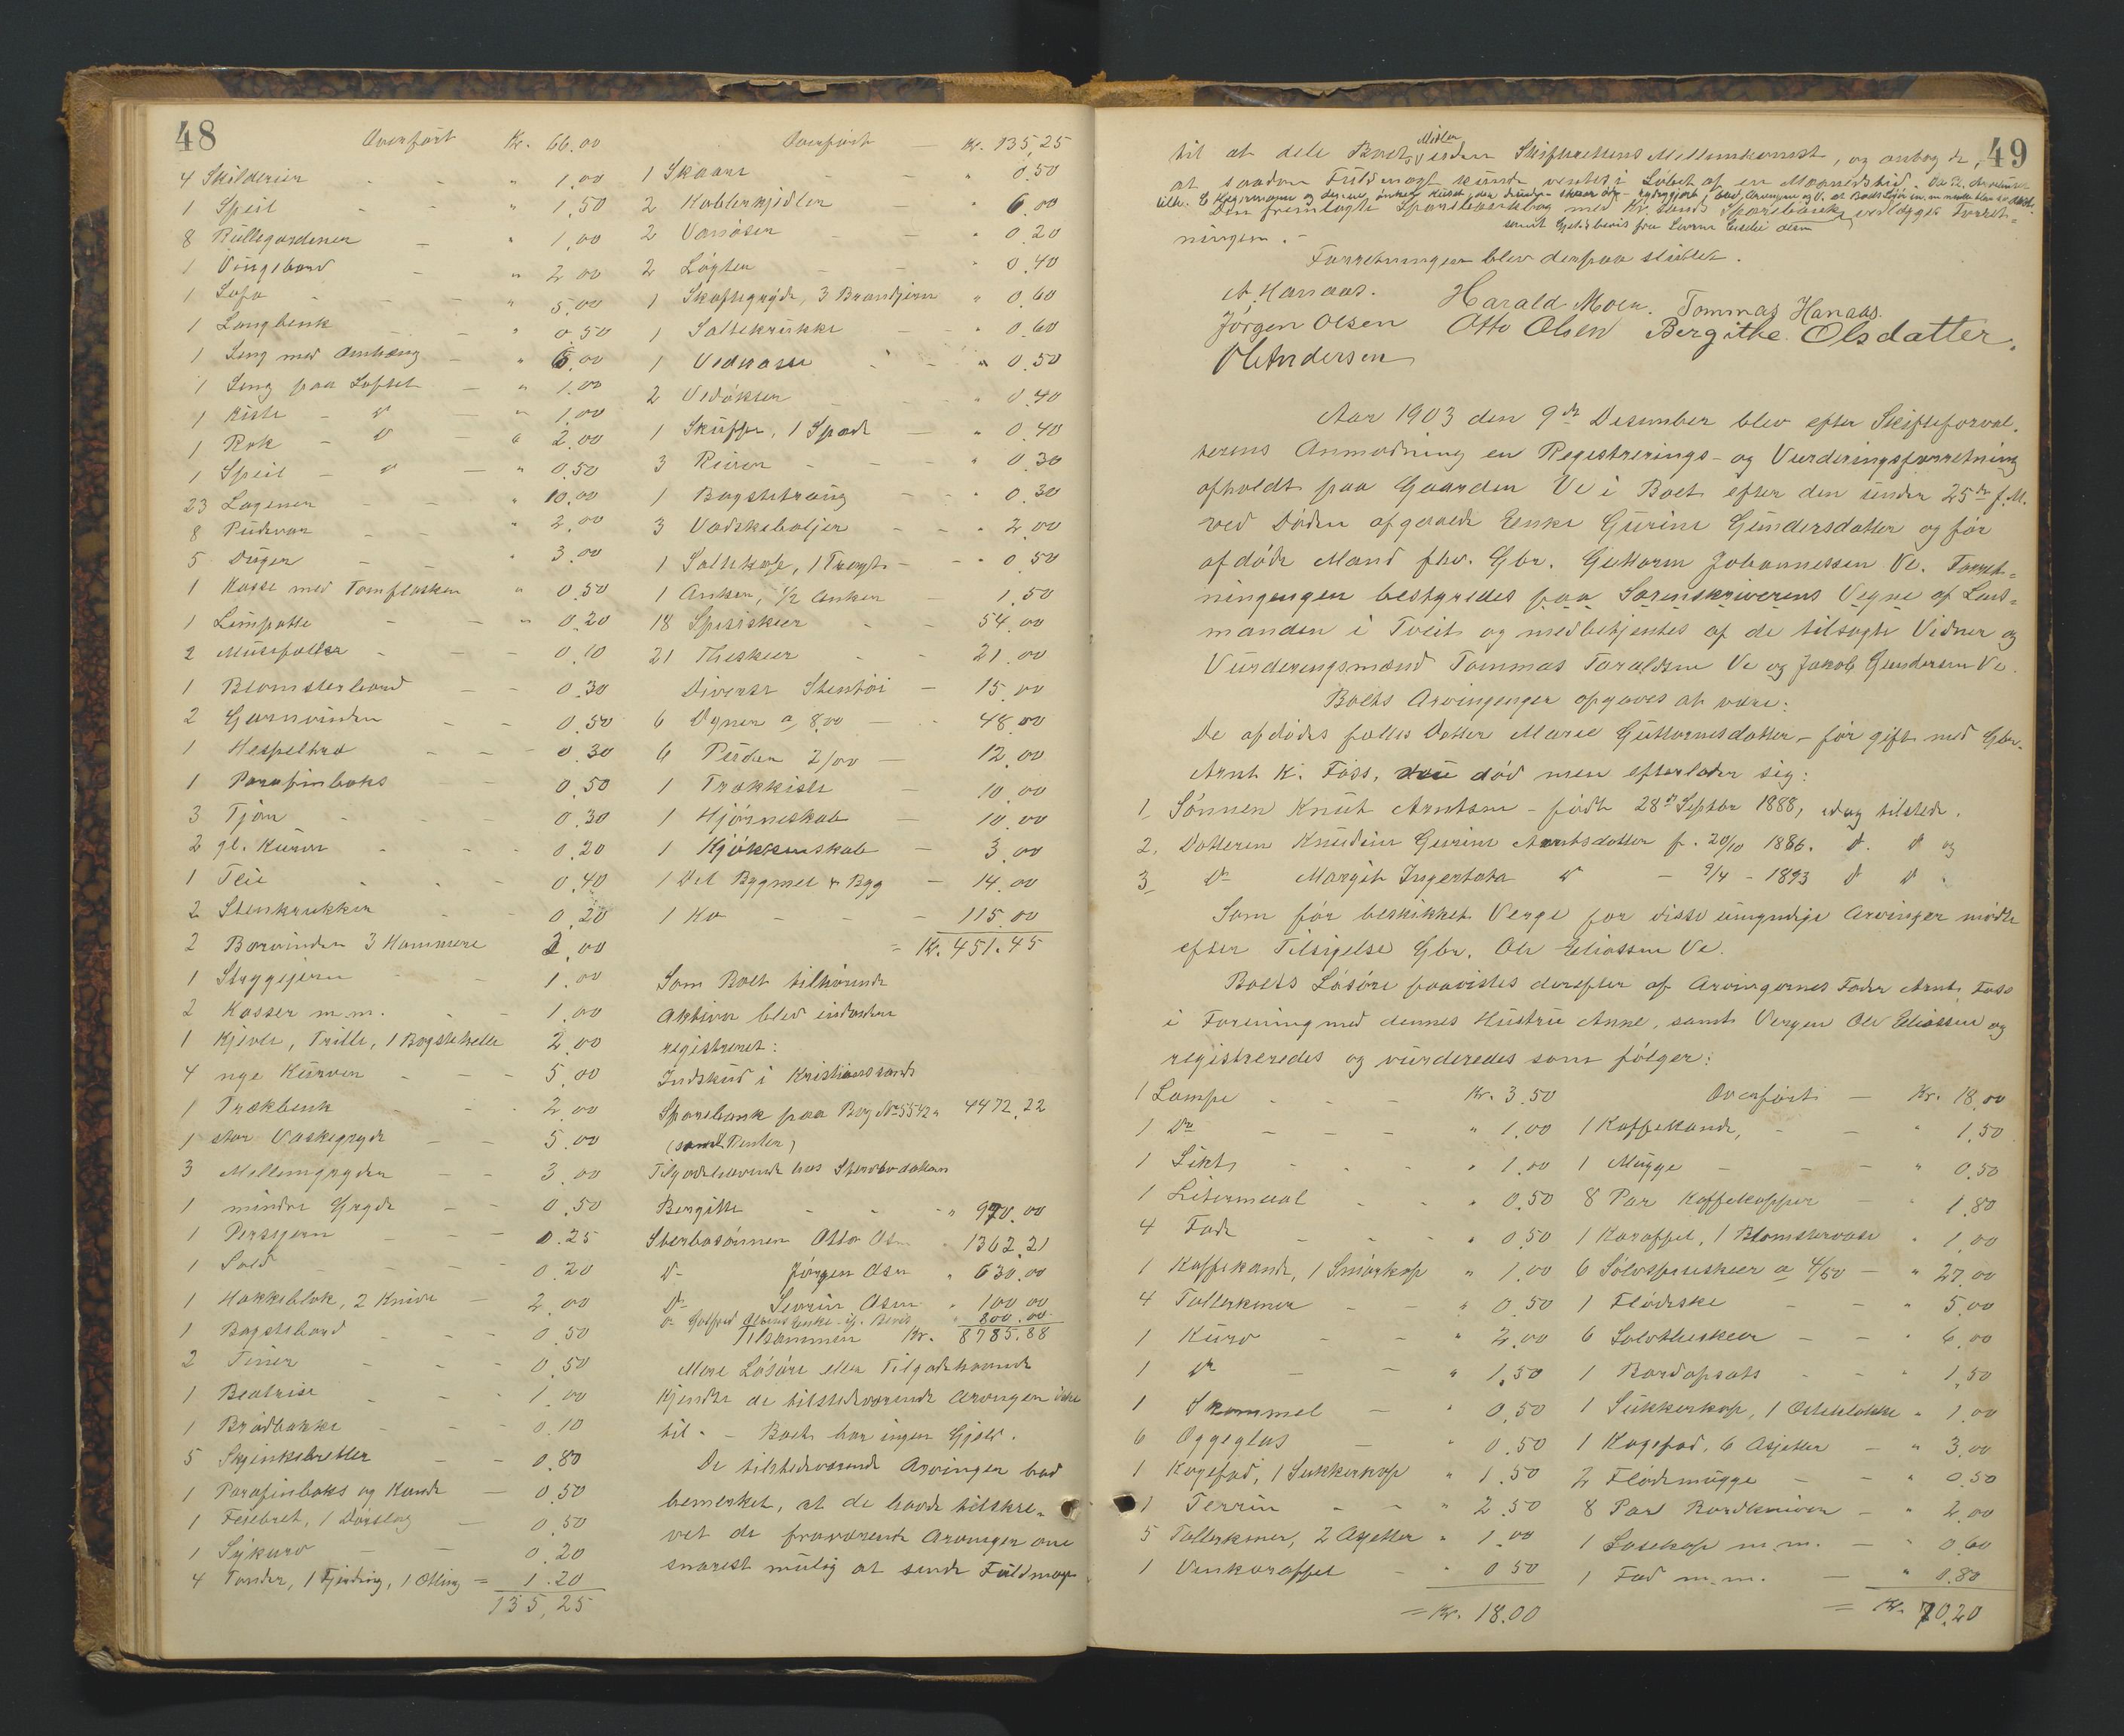 48
Overført Kr. 66.00
4 Skilderier - - " 1.00
1 Speil - - " 1.50
8 Rullegardener - " 1.00
1 Vingebord - " 2.00
1 Sofa - - " 5.00
1 Langbenk - - " 0.50
1 Seng med Omhæng - " 6.00
1 Seng paa Loftet - " 1.00
1 Kiste - d - " 1.00
1 Rok - d - " 2.00
1 Speil - d - " 0.50
23 Lagener - - " 10.00
8 Pudevar - - " 2.00
5 Duger - " 3.00
1 Kasse med Tomflasker " 0.50
1 Limpotte - - " 0.20
2 Musefæller - - - 0.10
1 Blomsterbord - - 0.30
2 Garnvinder - - 0.50
1 Hespeltræ - - - 0.30
1 Parafinboks - - 0.50
3 Tjør - - - 0.30
2 gl. Kurver - - - 0.20
1 Flie - - - 0.40
2 Stenkrukker - - 0.20
2 Borvinder 3 Hammere 2.00
1 Stryggejern - - 1.00
2 Kasser m.m. - - 1.00
1 Kjevle, Trille, 1 Bagstehelle 2.00
4 nye Kurver - - - 5.00
1 Trækbenk - - - 2.00
1 stor Vaskegryde - - 5.00
3 Mellemgryder - - 3.00
1 mindre Gryde - - 0.50
1 Persejern - - - 0.25
1 Sold - - - 0.20
1 Hakkeblok, 2 Knive - 2.00
1 Bagstebord - - - 0.50
2 Tiner - - - 0.50
1 Beatrise - - - 1.00
1 Brødbakke - - - 0.10
5 Skjenkebretter - - 0.80
1 Parafinboks og Kande - 0.50
1 Fesebret, 1 Dørslag - 0.50
1 Sykurv - - 0.20
4 Tønder, 1 Fjerding, 1 Otting = 1.20
135,25
Overført - Kr. 135,25
1 Skaare - - 0.50
2 Kobberkjedler - " 6.00
2 Vanøser - - " 0.20
2 Løgter - - " 0.40
1 Skaftegryde, 3 Brandjern " 0.60
1 Saltekrukke - - " 0.60
1 Vedkasse - - " 0.50
2 Vedøkser - - " 0.40
1 Skuffe, 1 Spade - " 0.40
3 River - - - " 0.30
1 Bagstetraug - - " 0.30
3 Vadskebaljer - - " 2.00
1 Saltekop, 1 Tragt - - " 0.50
1 Anker, 1/2 Anker - 1.50
18 Spiseskeer - - 54.00
21 Theskeer - - 21.00
Diverse Stentøi - 15.00
6 Dyner a 8,00 - - 48.00
6 Puder 2/00 - 12.00
1 Trækkiste - 10.00
1 Hjørneskab - 10.00
1 Kjøkkenskab - 3.00
1 Del Bygmel & Byg - 14.00
1 Ko - - - 115.00
= Kr. 451.45
Som Boet tilhørende
Aktiva blev endvidere
registreret:
Indskud i Kristianssands
Sparebank paa Bog No 5542 " 4472.22
(samt Renter)
Tilgodehavende hos Sterbodatter
Bergitte - - " 970.00
Sterbosønnen Otto Osn " 1362.21
d- Jørgen Osn " 630.00
d- Severin Osn " 100.00
" 800.00
Tilsammen Kr. 8785.88
Mere Løsøre eller Tilgodehavende
kjendte de tilstedeværende Arvinger ikke
til. - Boet har ingen Gjeld.
De tilstedeværende Arvinger bad
bemerket, at de havde tilskre-
vet de fraværende Arvinger om
snarest mulig at sende Fuldmagt
49
til at dele Boets Midler uden Skifterettens Mellemkomst, og antog de,
at saadan Fuldmagt kunde ventes i Løbet af en Maanedstid.
Den fremlagte Sparebankbog med Kr.sands Sparebank vedlægges Forret-
samt Gjeldsbevis fra
ningen. -
Forretningen blev derpaa sluttet.
A. Hanaas. Harald Moen. Tommas Hanaas.
Jørgen Olsen Otto Olsen Bergithe Olsdatter.
O Andersen
Aar 1903 den 9de Desember blev efter Skifteforval-
terens Anmodning en Registrerings- og Vurderingsforretning
afholdt paa Gaarden Ve i Boet efter den under 25de f.M.
ved Døden afgaaede Enke Gurine Gundersdatter og før
afdøde Mand fhv. Gbr. Guttorm Johannessen Ve. Forret-
ningengen bestyredes paa Sorenskriverens Vegne af Lens-
manden i Tveit og medbetjentes af de tilsagte Vidner og
Vurderingsmænd Tommas Taraldsen Ve og Jakob Gundersen Ve.
Boets Arvingenger opgaves at være:
De afdødes fælles Datter Marie Guttormsdatter - før gift med Gbr.
Arnt K. Foss, nu død men efterlader sig:
1, Sønnen Knut Arntsen - født 28de Septbr 1888, idag tilstede.
2, Datteren Knudine Gurine Arntsdatter f. 20/10 1886. d. d og
3, Do Margit Ingertoha d - 9/4 - 1893 d d.
Som før beskikket Verge for disse umyndige Arvinger mødte
efter Tilsigelse Gbr. Ole Eliassen Ve.
Boets Løsøre paavistes derefter af Arvingernes Fader Arnt Foss
i Forening med dennes Hustru Anne, samt Vergen Ole Eliassen og
registreredes og vurderedes som følger:
1 Lampe - - - Kr. 3.50
1 Do - - - " 1.00
1 Likt - - - " 1.00
1 Litermaal - - " 0.50
4 Fade - - - " 0.50
1 Kaffekande, 1 Smørkop " 1.00
4 Tallerkener - - " 0.50
1 Kurv - - " 2.00
1 do - - " 1.50
1 Skammel - " 0.50
6 Øggeglas - " 0.50
1 Kagefad, 1 Sukkerkop " 1.50
1 Terrin - - " 2.50
5 Tallerkener, 2 Asjetter " 1.00
1 Vinkaraffel - " 0.50
= Kr. 18.00
Overført - Kr. 18.00
1 Kaffekande, - - " 1.50
1 Mugge - - - " 0.50
8 Par Kaffekopper - " 1.80
1 Karaffel, 1 Blomstervase " 1.00
6 Sølvspiseskeer a 4/50 - " 27.00
1 Flødeske - - " 5.00
6 Sølvtheskeer - - " 6.00
1 Bordopsats - - " 1.50
1 Sukkerkop, 1 Osteklokke " 1.00
1 Kagefad, 6 Asjetter - " 3.00
2 Flødemugge - - " 0.50
8 Par Bordkniver - " 2.00
1 Sausekop m.m. - " 0.60
1 Fad m.m. - " 0.80
= Kr. 70.20